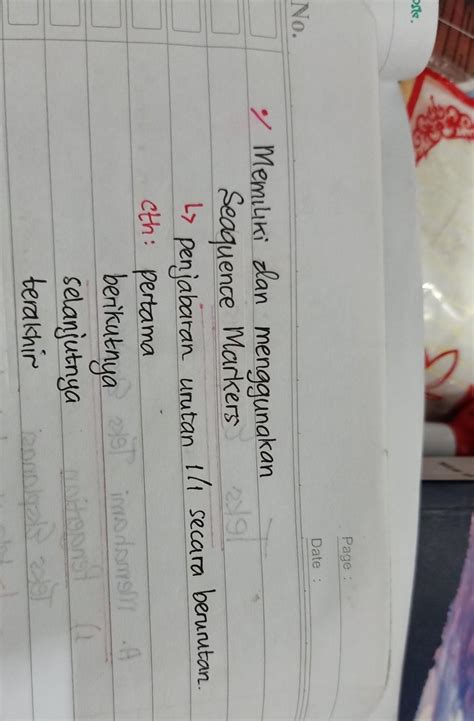 No.
Page :
Date :
•/ Memiliki dan menggunakan
Seaquence Markers
↳ penjabaran urutan 1/1 secara berurutan.
cth : pertama
berikutnya
selanjutnya
terakhir